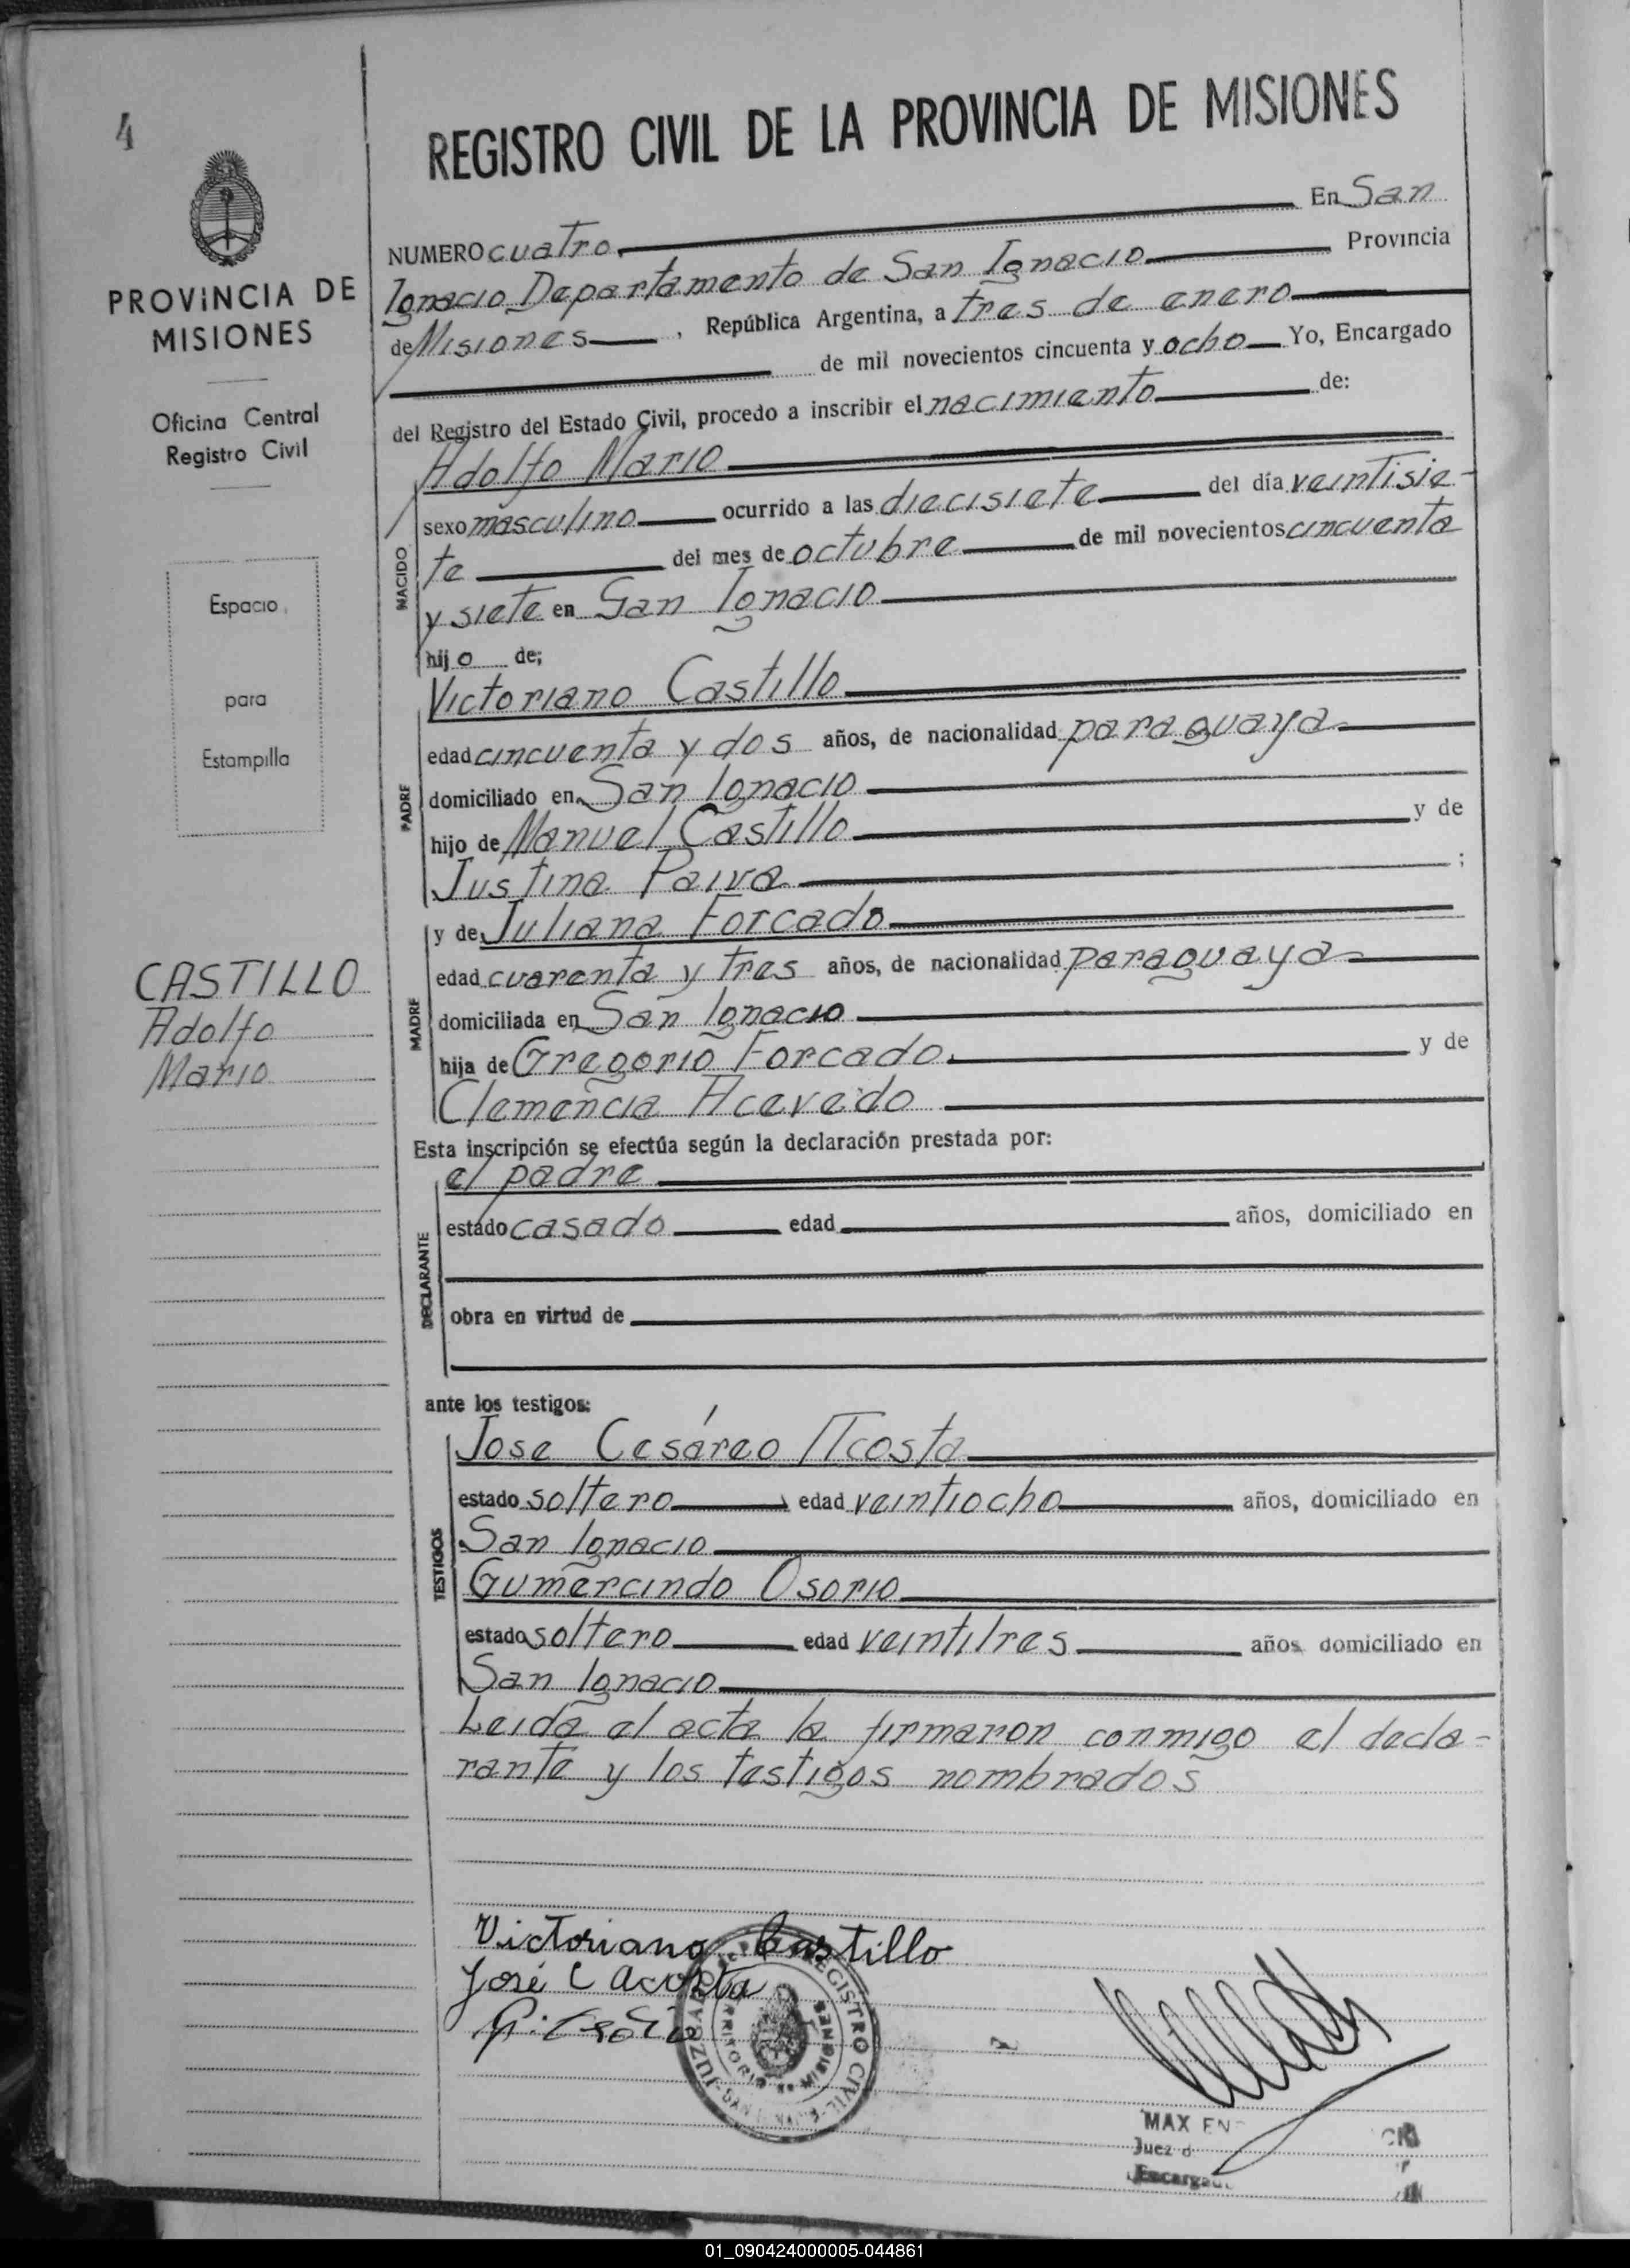 4
PROVINCIA DE
MISIONES
Oficina Central
Registro Civil
Espacio
para
Estampilla
CASTILLO
Adolfo
Mario
REGISTRO CIVIL DE LA PROVINCIA DE MISIONES
NUMERO cuatro En San
Ignacio Departamento de San Ignacio Provincia
de Misiones, República Argentina, a tres de enero
de mil novecientos cincuenta y ocho Yo, Encargado
del Registro del Estado Civil, procedo a inscribir el nacimiento de:
NACIDO
Adolfo Mario
sexo masculino ocurrido a las diecisiete del día veintisie-
te del mes de octubre de mil novecientos cincuenta
y siete en San Ignacio
hijo de;
PADRE
Victoriano Castillo
edad cincuenta y dos años, de nacionalidad paraguaya
domiciliado en San Ignacio
hijo de Manuel Castillo y de
Justina Paiva ;
MADRE
y de Juliana Forcado
edad cuarenta y tres años, de nacionalidad paraguaya
domiciliada en San Ignacio
hija de Gregorio Forcado y de
Clemencia Acevedo
Esta inscripción se efectúa según la declaración prestada por:
DECLARANTE
el padre
estado casado edad años, domiciliado en
obra en virtud de
ante los testigos:
TESTIGOS
Jose Cesáreo Acosta
estado soltero edad veintiocho años, domiciliado en
San Ignacio
Gumercindo Osorio
estado soltero edad veintitres años domiciliado en
San Ignacio
Leida el acta la firmaron conmigo el decla-
rante y los testigos nombrados
Victoriano Castillo
José C Acosta
REGISTRO CIVIL
MISIONES
MAX
Juez d
Encargad
01_090424000005-044861